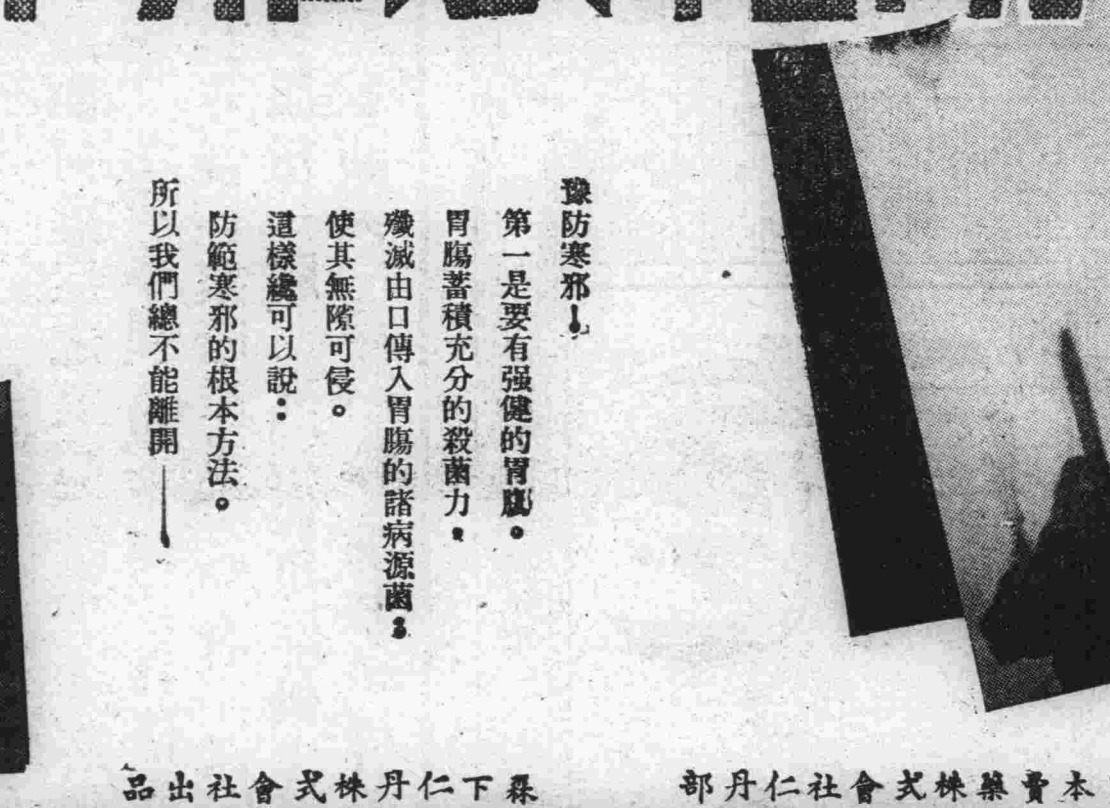 豫防寒邪！
第一是要有强健的胃腸。
胃腸蓄積充分的殺菌力，
殲滅由口傳入胃腸的諸病源菌；
使其無隙可侵。
這樣纔可以說：
防範寒邪的根本方法。
所以我們總不能離開——
本賣藥株式會社仁丹部
森下仁丹株式會社出品